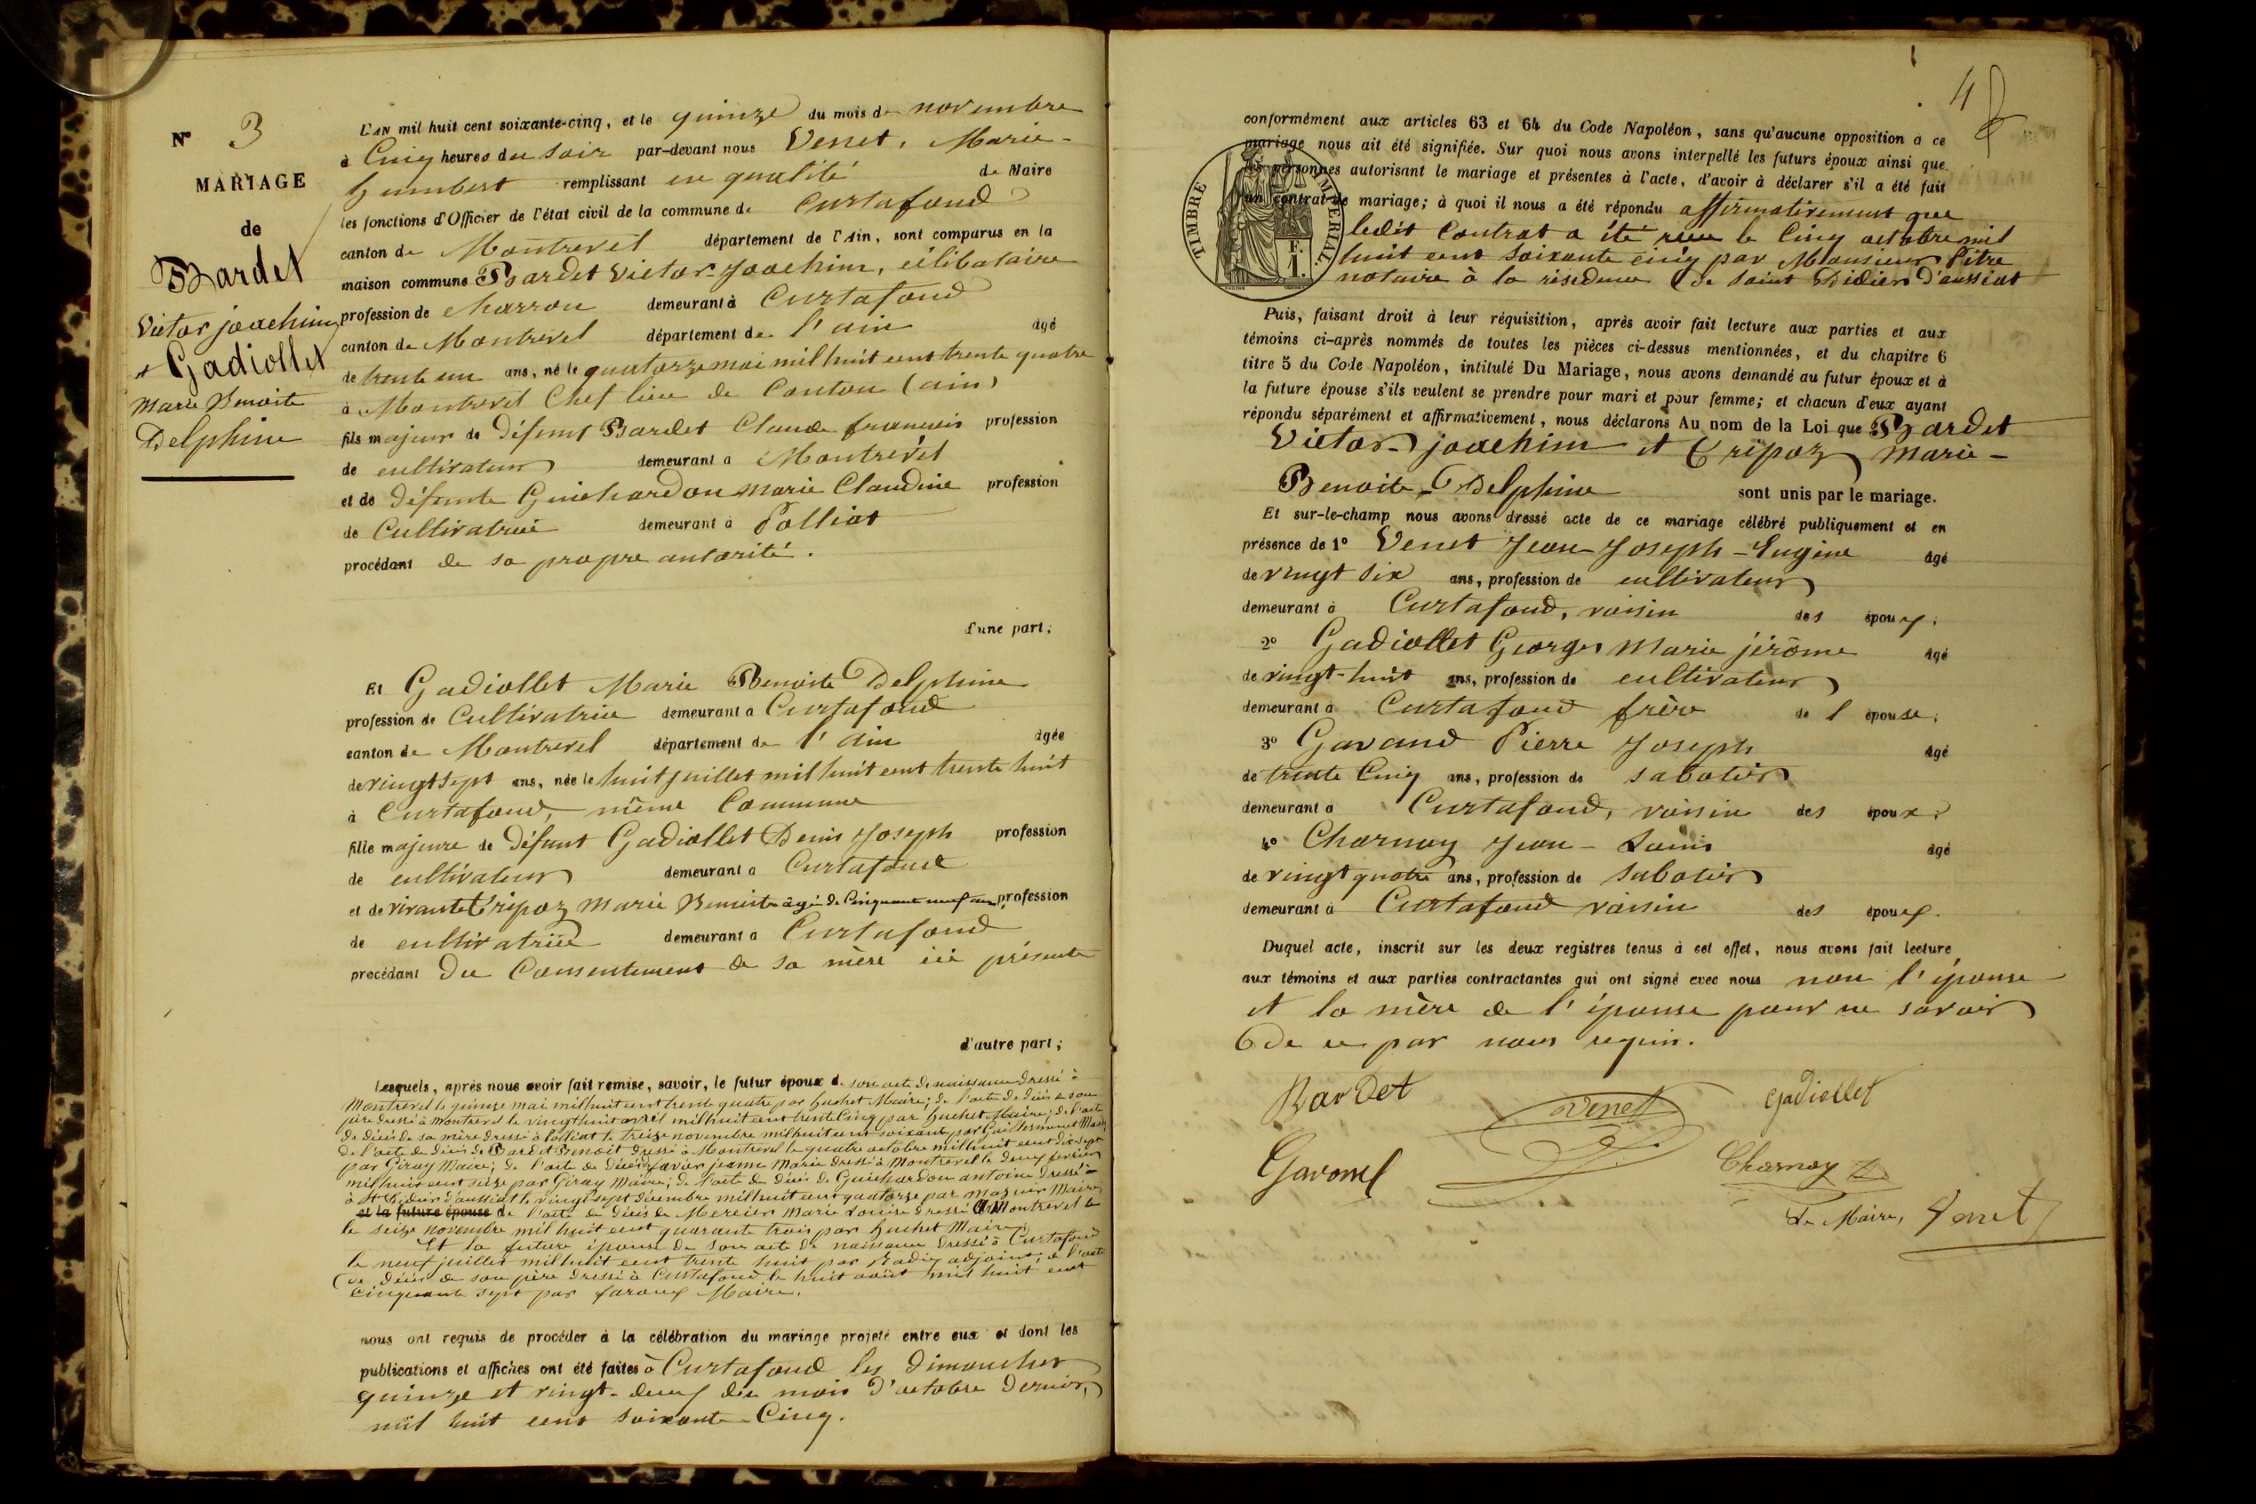 N° 3
MARIAGE
de
Bardet
Victor joachim
et Gadiollet
Marie Benoite
Delphine
L'AN mil huit cent soixante-cinq, et le quinze du mois de novembre
à Cinq heures du soir par-devant nous Venet, Marie-
humbert remplissant en qualité de Maire
les fonctions d'Officier de l'état civil de la commune de Curtafond
canton de Montrevel département de l'Ain, sont comparus en la
maison commune Bardet Victor-Joachim, célibataire
profession de charron demeurant à Curtafond
canton de Montrevel département de l'ain âgé
de trente un ans, né le quatorze mai mil huit cent trente quatre
à Montrevel Chef lieu de Canton (ain)
fils majeur de défunt Bardet Claude françois profession
de cultivateur demeurant à Montrevel
et de défunte Guichardon marie Claudine profession
de Cultivatrice demeurant à Polliat
procédant de sa propre autorité.
d'une part;
Et Gadiollet Marie Benoite Delphine
profession de Cultivatrice demeurant à Curtafond
canton de Montrevel département de l'ain âgée
de vingt sept ans, née le huit juillet mil huit cent trente huit
à Curtafond, même Commune
fille majeure de défunt Gadiollet Denis Joseph profession
de cultivateur demeurant à Curtafond
et de vivante Cripoz Marie Benoite âgée de Cinquante neuf ans profession
de cultivatrice demeurant à Curtafond
procédant du Consentement de sa mère ici présente
d'autre part;
Lesquels, après nous avoir fait remise, savoir, le futur époux de son acte de naissance dressé à
Montrevel le quinze mai mil huit cent trente quatre par huchet Maire; de l'acte de décès de son
père dressé à Montrevel le vingt huit avril mil huit cent trente Cinq par huchet Maire; de l'acte
de décès de sa mère dressé à Polliat le treize novembre mil huit cent soixante par
de l'acte de décès de Bardet Benoit dressé à Montrevel le quatre octobre mil huit cent dix sept
par Giray Maire; de l'acte de décès de favier jeanne Marie dressé à Montrevel le deux février
mil huit cent seize par Giray Maire; de l'acte de décès de Guichardon antoine dressé
à St Didier d'aussiat le vingt sept décembre mil huit cent quatorze par Maire
et la future épouse de l'acte de décès de Mercier Marie Louise dressé à Montrevel le
le seize novembre mil huit cent quarante trois par huchet Maire;
Et la future épouse de son acte de naissance dressé à Curtafond
le neuf juillet mil huit cent trente huit par adjoint; de l'acte
de décès de son père dressé à Curtafond le huit août mil huit cent
cinquante sept par faroux Maire.
nous ont requis de procéder à la célébration du mariage projeté entre eux et dont les
publications et affiches ont été faites à Curtafond les dimanches
quinze et vingt-deux du mois d'octobre dernier,
mil huit cent soixante-Cinq.
4
TIMBRE IMPERIAL
F.
1.
conformément aux articles 63 et 64 du Code Napoléon, sans qu'aucune opposition à ce
mariage nous ait été signifiée. Sur quoi nous avons interpellé les futurs époux ainsi que
les personnes autorisant le mariage et présentes à l'acte, d'avoir à déclarer s'il a été fait
un contrat de mariage; à quoi il nous a été répondu affirmativement que
ledit Contrat a été reçu le Cinq octobre mil
huit cent soixante cinq par Monsieur Pitre
notaire à la résidence de saint Didier d'aussiat
Puis, faisant droit à leur réquisition, après avoir fait lecture aux parties et aux
témoins ci-après nommés de toutes les pièces ci-dessus mentionnées, et du chapitre 6
titre 5 du Code Napoléon, intitulé Du Mariage, nous avons demandé au futur époux et à
la future épouse s'ils veulent se prendre pour mari et pour femme; et chacun d'eux ayant
répondu séparément et affirmativement, nous déclarons Au nom de la Loi que Bardet
Victor-joachim et Cripoz Marie-
Benoite-Delphine sont unis par le mariage.
Et sur-le-champ nous avons dressé acte de ce mariage célébré publiquement et en
présence de 1° Venet Jean-Joseph-Eugène âgé
de vingt six ans, profession de cultivateur
demeurant à Curtafond, voisin des époux;
2° Gadiollet Georges Marie jérôme âgé
de vingt-huit ans, profession de cultivateur
demeurant à Curtafond frère de l épouse;
3° Gavand Pierre Joseph âgé
de trente Cinq ans, profession de sabotier
demeurant à Curtafond, voisin des époux;
4° Charnay Jean-Louis âgé
de vingt quatre ans, profession de sabotier
demeurant à Curtafond voisin des époux.
Duquel acte, inscrit sur les deux registres tenus à cet effet, nous avons fait lecture
aux témoins et aux parties contractantes qui ont signé avec nous non l'épouse
et la mère de l'épouse pour ne savoir
de ce par nous requis.
Bardet Venet gadiollet
Gavand Charnay
Le Maire, Venet